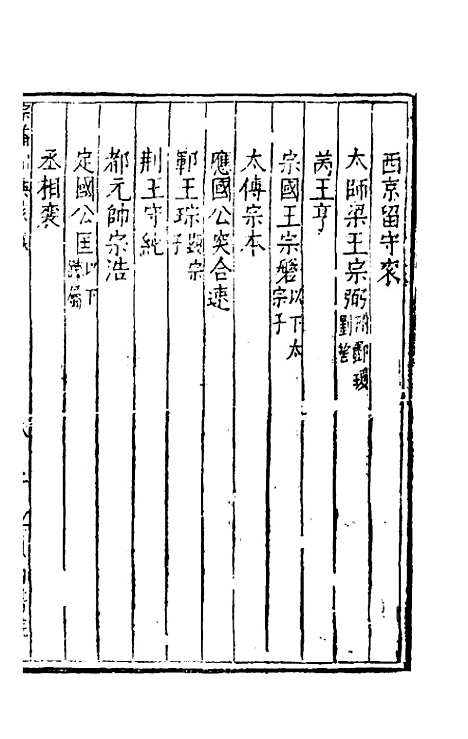 西京留守衮
太師梁王宗弼附酈瓊劉筈
芮王亨
宗國王宗磐以下太宗子
太傅宗本
應國公突合速
鄆王琮顯宗子
荆王守純
都元帥宗浩
定國公匡以下踈屬
丞相襄